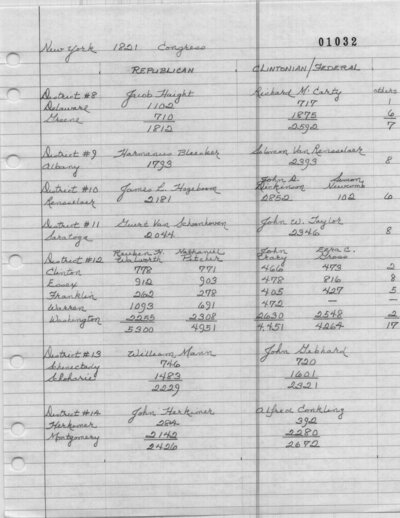 01032
New York 1821 Congress
REPUBLICAN CLINTONIAN/FEDERAL
District #8 Jacob Haight Richard McCarty others
Delaware 1102 717 1
Greene 710 1875 6
1812 2592 7
District #9 Harmanus Bleecker Solomon Van Rensselaer
Albany 1793 2393 8
District #10 James L. Hogeboom John D. Dickinson Newcomb
Rensselaer 2181 2852 102 6
District #11 Guert Van Schoonhoven John W. Taylor
Saratoga 2044 2346 8
District #12 Reuben H. Walworth Nathaniel Pitcher John Crary Ezra C. Gross
Clinton 778 771 466 473 2
Essex 912 903 478 816 8
Franklin 262 278 405 427 5
Warren 1093 691 472 — —
Washington 2255 2308 2630 2548 2
5300 4951 4451 4264 17
District #13 William Mann John Gebhard
Schenectady 746 720
Schoharie 1483 1601
2229 2321
District #14 John Herkimer Alfred Conkling
Herkimer 284 392
Montgomery 2142 2280
2426 2672